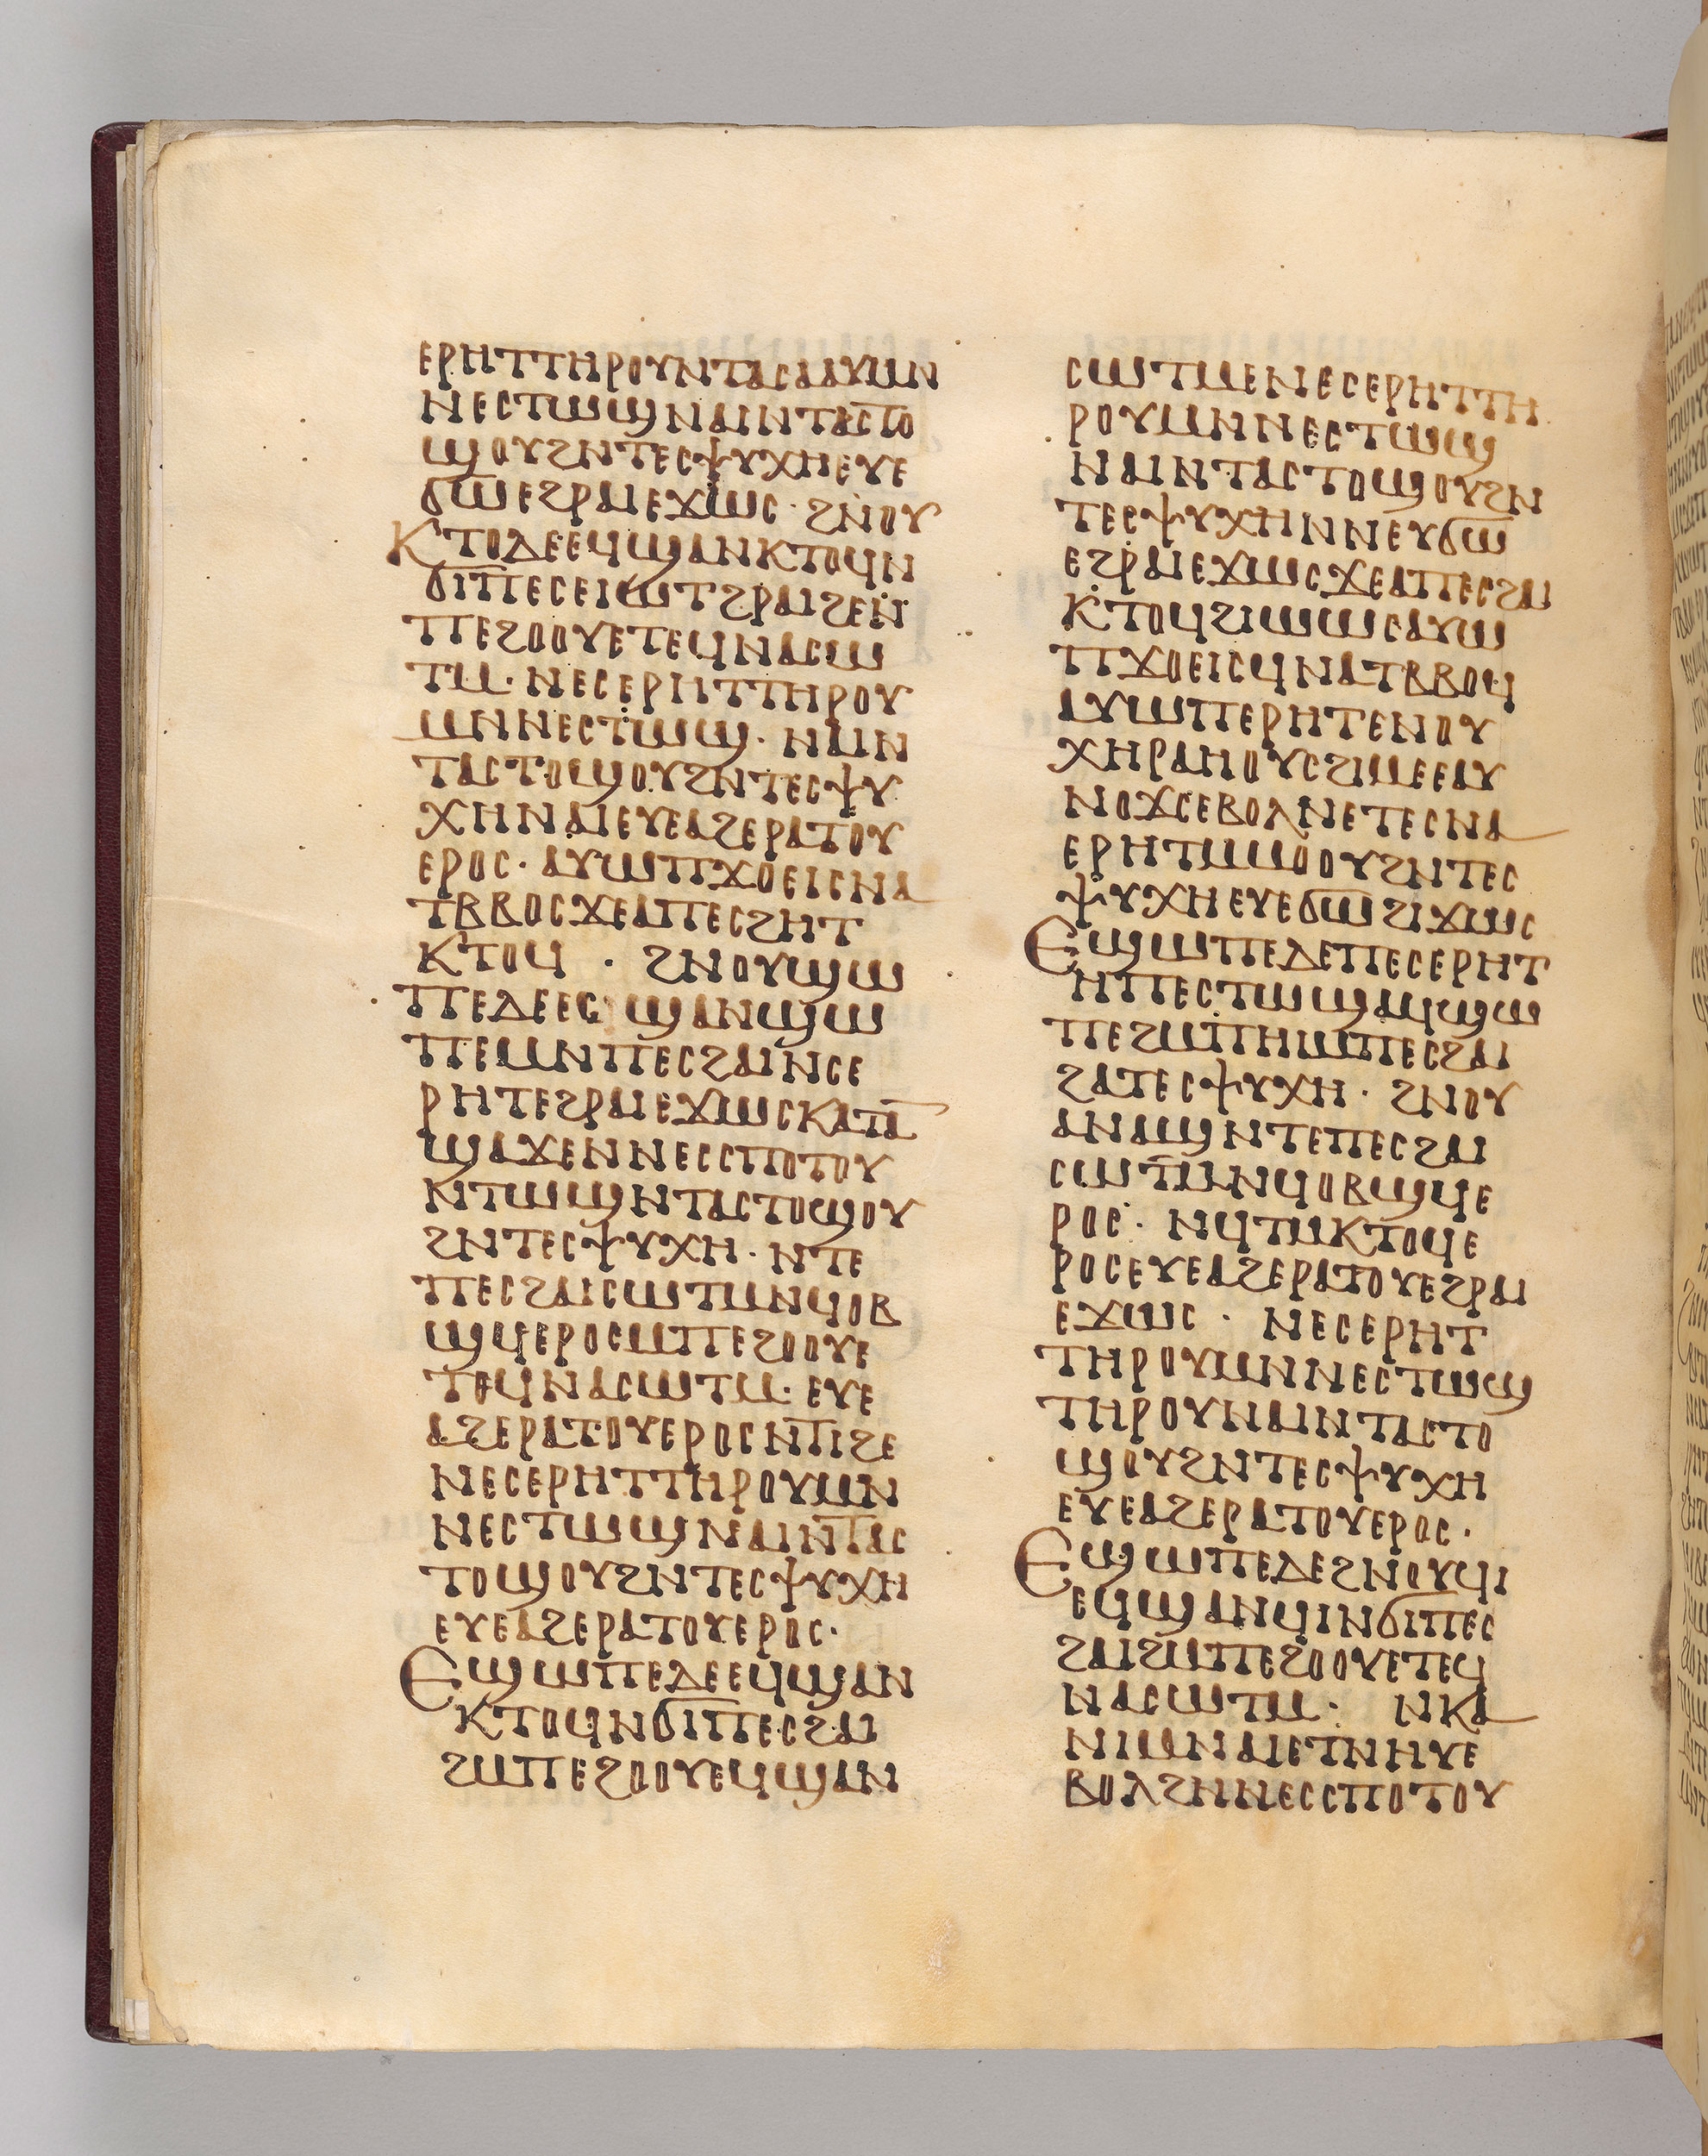 ⲉⲣⲏⲧⲧⲏⲣⲟⲩⲛⲧⲁⲥⲁⲁⲩⲙⲛ
ⲛⲉⲥⲧⲱϣⲛⲁⲓⲛⲧⲁⲥⲧⲟ
ϣⲟⲩϩⲛⲧⲉⲥⲯⲩⲭⲏⲉⲩⲉ
ϭⲱⲉϩⲣⲁⲓⲉϫⲱⲥ· ϩⲛⲟⲩ
ⲕⲧⲟⲇⲉⲉϥϣⲁⲛⲕⲧⲟϥⲛ
ϭⲓⲡⲉⲥⲉⲓⲱⲧϩⲣⲁⲓϩⲉⲛ
ⲡⲉϩⲟⲟⲩⲉⲧⲉϥⲛⲁⲥⲱ
ⲧⲙ· ⲛⲉⲥⲉⲣⲏⲧⲧⲏⲣⲟⲩ
ⲙⲛⲛⲉⲥⲧⲱϣ· ⲛⲁⲓⲛ
ⲧⲁⲥⲧⲟϣⲟⲩϩⲛⲧⲉⲥⲯⲩ
ⲭⲏⲛⲁⲓⲉⲩⲉⲁϩⲉⲣⲁⲧⲟⲩ
ⲉⲣⲟⲥ· ⲁⲩⲱⲡϫⲟⲉⲓⲥⲛⲁ
ⲧⲃⲃⲟⲥϫⲉⲁⲡⲉⲥϩⲏⲧ
ⲕⲧⲟϥ · ϩⲛⲟⲩϣⲱ
ⲡⲉⲇⲉⲉⲥϣⲁⲛϣⲱ
ⲡⲉⲙⲛⲡⲉⲥϩⲁⲓⲛⲥⲉ
ⲣⲏⲧⲉϩⲣⲁⲓⲉϫⲱⲥⲕⲁⲧⲁ
ϣⲁϫⲉⲛⲛⲉⲥⲥⲡⲟⲧⲟⲩ
ⲛⲧⲱϣⲛⲧⲁⲥⲧⲟϣⲟⲩ
ϩⲛⲧⲉⲥⲯⲩⲭⲏ· ⲛⲧⲉ
ⲡⲉⲥϩⲁⲓⲥⲱⲧⲙⲛϥⲟⲃ
ϣϥⲉⲣⲟⲥⲙⲡⲉϩⲟⲟⲩⲉ
ⲧⲉϥⲛⲁⲥⲱⲧⲙ· ⲉⲩⲉ
ⲁϩⲉⲣⲁⲧⲟⲩⲉⲣⲟⲥⲛⲧⲓϩⲉ
ⲛⲉⲥⲉⲣⲏⲧⲧⲏⲣⲟⲩⲙⲛ
ⲛⲉⲥⲧⲱϣⲛⲉⲁⲓⲛⲧⲁⲥ
ⲧⲟϣⲟⲩϩⲛⲧⲉⲥⲯⲩⲭⲏ
ⲉⲩⲉⲁϩⲉⲣⲁⲧⲟⲩⲉⲣⲟⲥ·
ⲉϣⲱⲡⲉⲇⲉⲉϥϣⲁⲛ
ⲕⲧⲟϥⲛϭⲓⲡⲉⲥϩⲁⲓ
ϩⲙⲡⲉϩⲟⲟⲩⲉϥϣⲁⲛ
ⲥⲱⲧⲙⲉⲛⲉⲥⲉⲣⲏⲧⲧⲏ
ⲣⲟⲩⲙⲛⲛⲉⲥⲧⲱϣ
ⲛⲁⲓⲛⲧⲁⲥⲧⲟϣⲟⲩϩⲛ
ⲧⲉⲥⲯⲩⲭⲏⲛⲛⲉⲩϭⲱ
ⲉϩⲣⲁⲓⲉϫⲱⲥϫⲉⲁⲡⲉⲥϩⲁⲓ
ⲕⲧⲟϥϩⲓⲱⲱⲥⲁⲩⲱ
ⲡϫⲟⲉⲓⲥϥⲛⲁⲧⲃⲃⲟϥ
ⲁⲩⲱⲡⲉⲣⲏⲧⲉⲛⲟⲩ
ⲭⲏⲣⲁⲙⲟⲩⲥϩⲓⲙⲉⲉⲁⲩ
ⲛⲟϫⲥⲉⲃⲟⲗⲛⲉⲧⲉⲥⲛⲁ
ⲉⲣⲏⲧⲙⲙⲟⲟⲩϩⲛⲧⲉⲥ
ⲯⲩⲭⲏⲉⲩⲉϭⲱϩⲓϫⲱⲥ
ⲉϣⲱⲡⲉⲇⲉⲡⲉⲥⲉⲣⲏⲧ
ⲏⲡⲉⲥⲧⲱϣⲁϥϣⲱ
ⲡⲉϩⲙⲡⲏⲓⲙⲡⲉⲥϩⲁⲓ
ϩⲁⲧⲉⲥⲯⲩⲭⲏ· ϩⲛⲟⲩ
ⲁⲛⲁϣⲛⲧⲉⲡⲉⲥϩⲁⲓ
ⲥⲱⲧⲙⲛϥⲟⲃϣϥⲉ
ⲣⲟⲥ· ⲛϥⲧⲙⲕⲧⲟϥⲉ
ⲣⲟⲥⲉⲩⲉⲁϩⲉⲣⲁⲧⲟⲩⲉϩⲣⲁⲓ
ⲉϫⲱⲥ · ⲛⲉⲥⲉⲣⲏⲧ
ⲧⲏⲣⲟⲩⲙⲛⲛⲉⲥⲧⲱϣ
ⲧⲏⲣⲟⲩⲛⲁⲓⲛⲧⲁⲥⲧⲟ
ϣⲟⲩϩⲛⲧⲉⲥⲯⲩⲭⲏ
ⲉⲩⲉⲁϩⲉⲣⲁⲧⲟⲩⲉⲣⲟⲥ·
ⲉϣⲱⲡⲉⲇⲉϩⲛⲟⲩϥⲓ
ⲉϥϣⲁⲛϥⲓⲛϭⲓⲡⲉⲥ
ϩⲁⲓϩⲙⲡⲉϩⲟⲟⲩⲉⲧⲉϥ
ⲛⲁⲥⲱⲧⲙ· ⲛⲕⲁ
ⲛⲓⲙⲛⲁⲓⲉⲧⲛⲏⲩⲉ
ⲃⲟⲗϩⲛⲛⲉⲥⲥⲡⲟⲧⲟⲩ